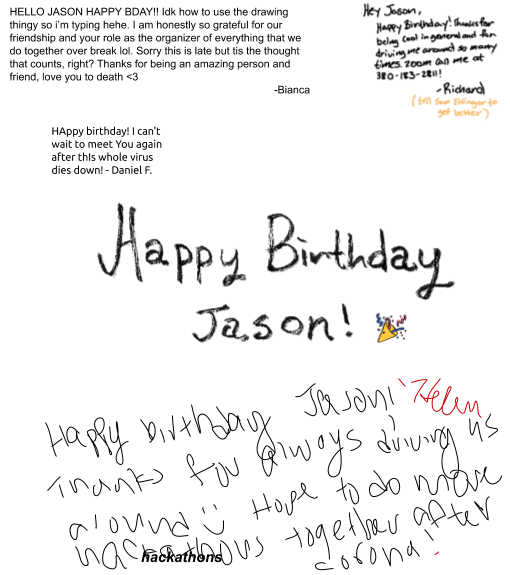 HELLO JASON HAPPY BDAY!! Idk how to use the drawing
thingy so i'm typing hehe. I am honestly so grateful for our
friendship and your role as the organizer of everything that we
do together over break lol. Sorry this is late but tis the thought
that counts, right? Thanks for being an amazing person and
friend, love you to death <3
-Bianca
Hey Jason,
Happy Birthday! Thanks for
being cool in general and for
driving me around so many
times. Zoom call me at
380-183-2811!
-Richard
(tell Sam Ettinger to
get better)
HAppy birthday! I can't
wait to meet You again
after thIs whole virus
dies down! - Daniel F.
Happy Birthday
Jason!
Happy birthday Jason! Helen
Thanks for always driving us
around Hope to do more
hackathons together after
corona!
hackathons